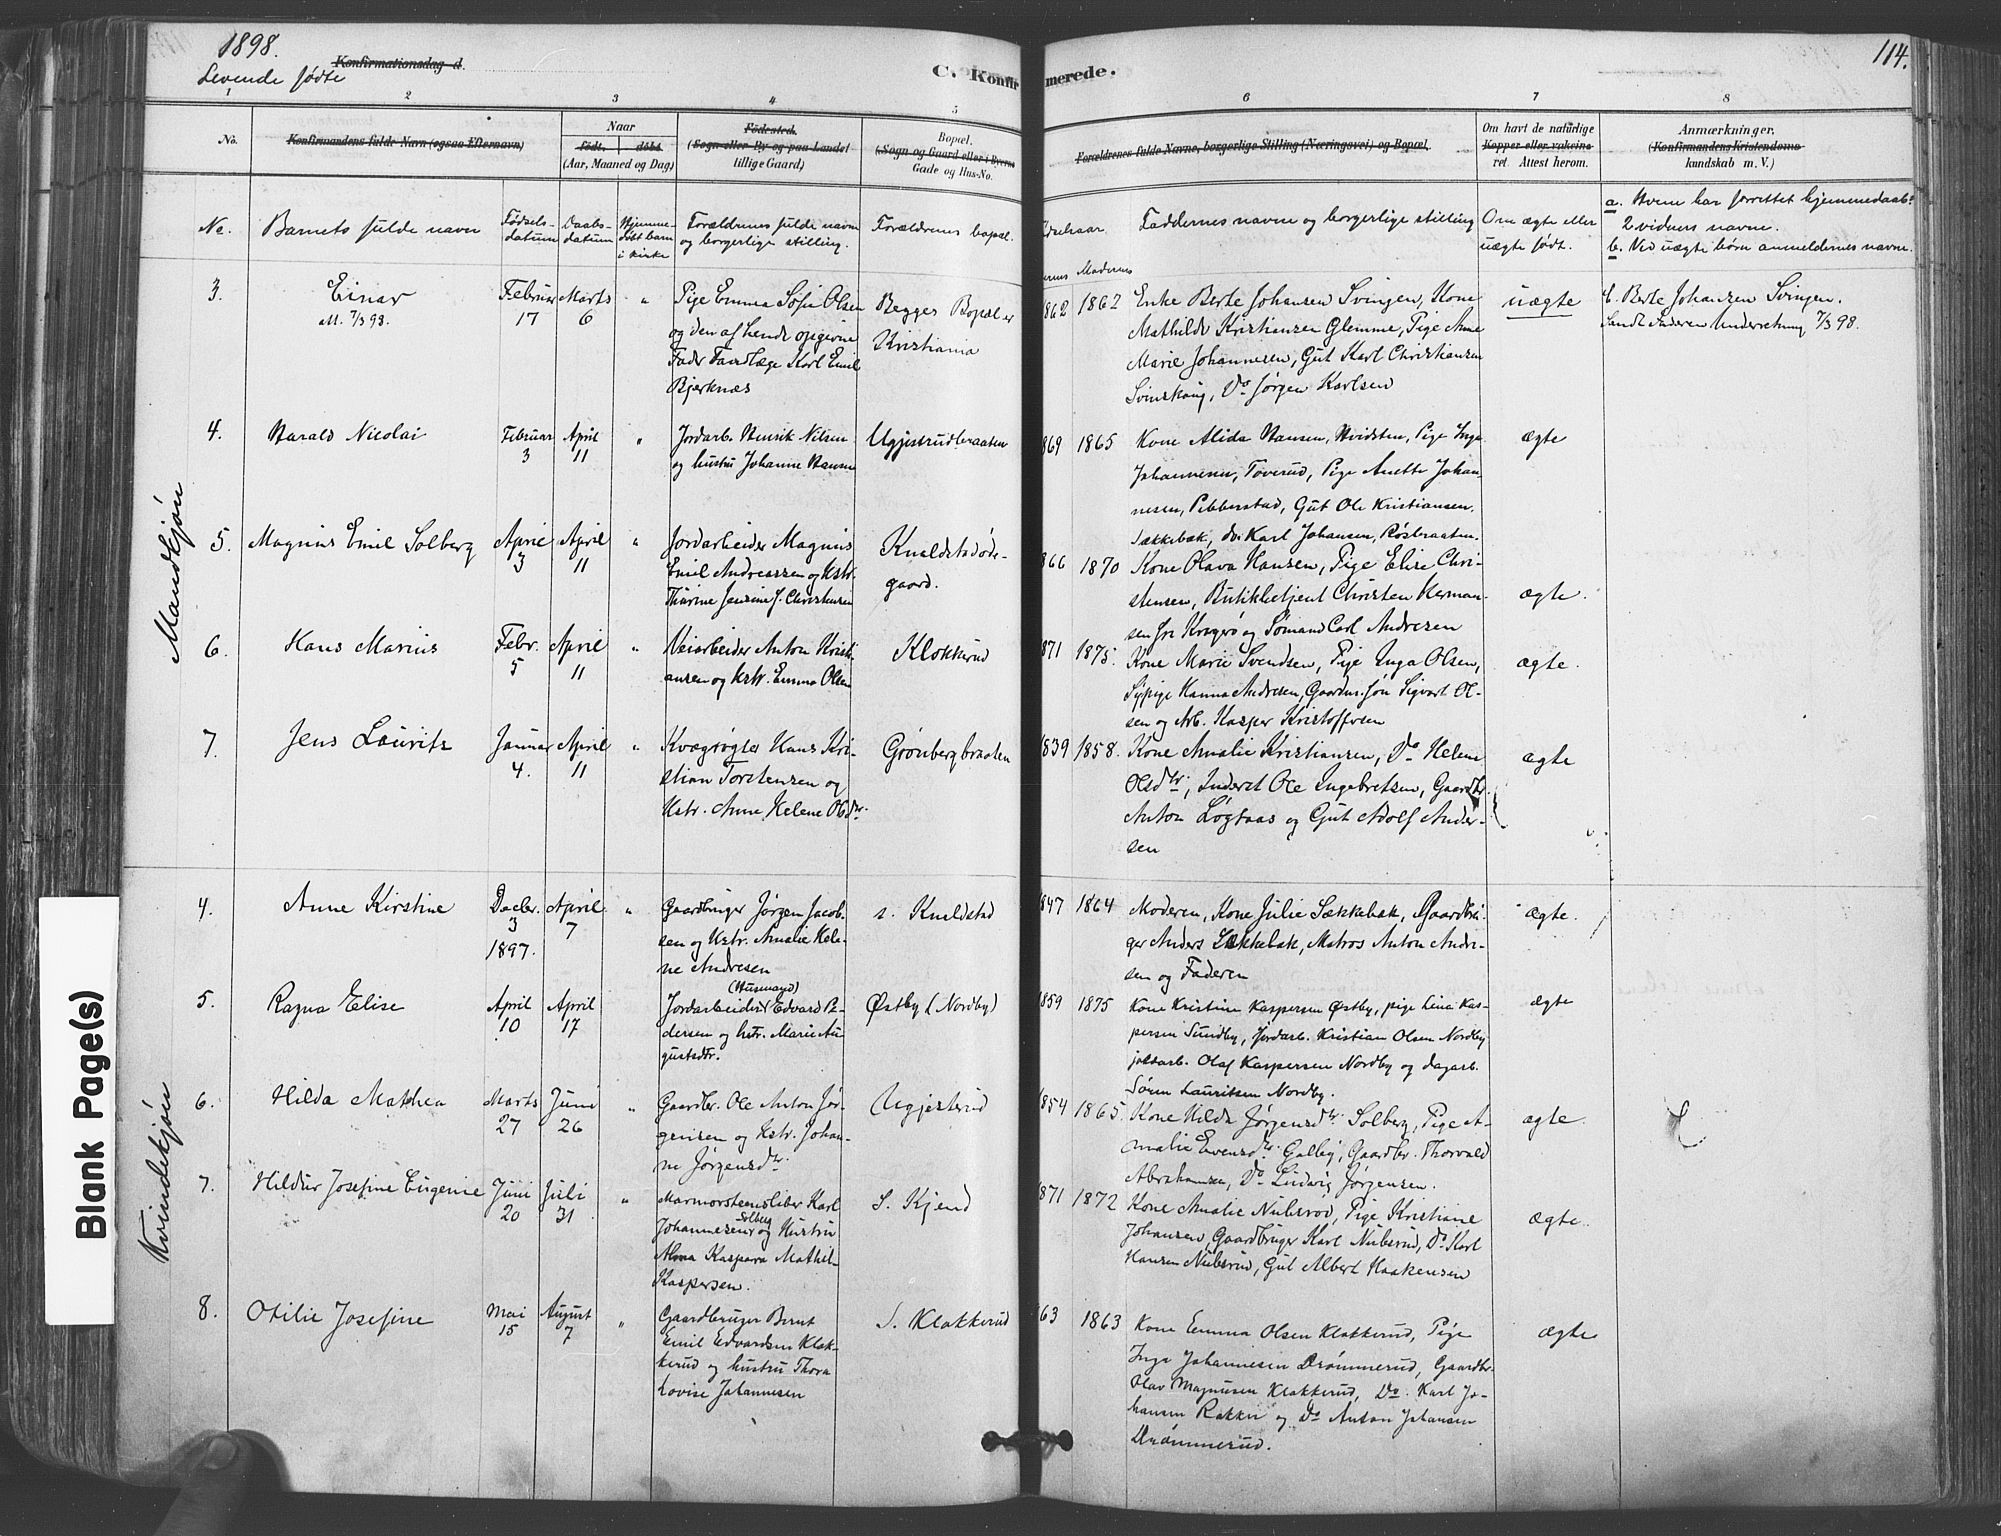 1898.
Levende fødte
Konfirmationsdag d.
C. Konfirmerede.
114.
1 2 3 4 5 6 7 8
No.
Konfirmandens fulde Navn (ogsaa Efternavn)
Naar
født. døbt
(Aar, Maaned og Dag)
Fødested.
(Sogn eller By og paa Landet
tillige Gaard)
Bopæl.
(Sogn og Gaard eller i Byerne
Gade og Hus-No.
Forældrenes fulde Navne, borgerlige Stilling (Næringsvei) og Bopæl.
Om havt de naturlige
Kopper eller vaksine-
ret. Attest herom.
Anmærkninger.
(Konfirmandens Kristendoms-
kundskab m. V.)
No.
Barnets fulde navn
Fødsels-
datum
Daabs-
datum
Hjemme-
døbt barn
i kirke
Forældrenes fulde navn
og borgerlige stilling.
Forældrenes bopæl.
Fødselsaar
Moderens
Faddernes navne og borgerlige stilling
Om ægte eller
uægte født.
a. Hvem har forrettet hjemmedaab?
2 vidners navne.
b. Ved uægte børn anmeldernes navne.
Mandkjøn
3.
Einar
M. 7/3 98.
Februar
17
Marts
6
"
Pige Emma Sofie Olsen
og den af hende opgivne
Fader Tandlæge Karl Emil
Bjerknæs
Begges Bopæl er
Kristiania
1862 1862
Enke Berte Johansen Svingen, Kone
Mathilde Kristiansen Glemme, Pige Anne
Marie Johannesen, Gut Karl Christiansen
Svinskaug, Do Jørgen Karlsen
uægte
b. Berte Johansen Svingen.
Sendt Faderen Underretning 7/3 98.
4.
Harald Nicolai
Februar
3
April
11
"
Jordarb. Henrik Nilsen
og hustru Johanne Hansen
Ugjestrudbraaten
1869 1865
Kone Alida Hansen, Hvidsten, Pige Inga
Johannesen, Toverud, Pige Anette Johan-
nesen, Pibberstad, Gut Ole Kristiansen
Sækkebæk, do. Karl Johansen, Røsbraaten.
ægte
5.
Magnus Emil Solberg
April
3
April
11
"
Jordarbeider Magnus
Emil Andreassen og Hstr.
Thorine Jensine f. Christensen
Knaldstadøde-
gaard.
1866 1870
Kone Olava Hansen, Pige Elise Chri-
stensen, Butikbetjent Christen Herman-
sen fra Kragerø og Sømand Carl Andresen
ægte.
6.
Hans Marius
Febr.
5
April
11
"
Veiarbeider Anton Kristi-
ansen og Hstr. Emma Olsen
Klokkerud
1871 1875.
Kone Marie Svendsen, Pige Inga Olsen,
Sypige Hanna Andresen, Gaardm. søn Sigvart Ol-
sen og Arb. Kasper Kristoffersen
ægte.
7.
Jens Lauritz
Januar
4.
April
11
"
Kvægrøgter Hans Kri-
stian Torstensen og
Hstr. Anne Helene Olsdtr.
Grønbergbraaten
1839 1858.
Kone Amalie Kristiansen, Do Helene
Olsdtr, Inderst Ole Ingebretsen, Gaardbr.
Anton Løgtaas og Gut Adolf Ander-
sen
ægte
Kvindekjøn
4.
Anne Kirstine
Decbr.
3
1897.
April
7
"
Gaardbruger Jørgen Jacob-
sen og Hstr. Amalie Hele-
ne Andresen
s. Knaldstad
1847 1864
Moderen, Kone Julie Sækkebæk, Gaardbru-
ger Anders Sækkebæk, Matros Anton Andre-
sen og Faderen
ægte.
5.
Ragna Elise
April
10
April
17
(Husmand)
Jordarbeider Edvard Pe-
dersen og hstr. Marie Au-
gustsdtr.
Østby (Nordby)
1859 1875
Kone Kristine Kaspersen Østby, pige Lina Kas-
persen Sundby, Jordarb. Kristian Olsen Nordby
jordarb. Olaf Kaspersen Nordby og dagarb.
Søren Lauritsen Nordby.
ægte
6.
Hilda Mathea
Marts
27
Juni
26
"
Gaardbr. Ole Anton Jør-
gensen og Hstr. Johan-
ne Jørgensdtr.
Ugjesterud
1854 1865.
Kone Hilda Jørgensdtr. Solberg, Pige A-
malie Evensdtr. Galby, Gaardbr. Thorvald
Abrahamsen, Do Ludvig Jørgensen.
ægte.
7.
Hildur Josefine Eugenie
Juni
20
Juli
31
"
Marmorstensliber Karl
Johannesen Solberg og Hustru
Alma Kaspara Mathil.
Kaspersen.
S. Kjend
1871 1872
Kone Amalie Nubsrud, Pige Kristiane
Johansen, Gaardbruger Karl Nubsrud, Do Karl
Hansen Nubsrud, Gut Albert Haakensen
ægte.
8.
Otilie Josefine
Mai
15
August
7
"
Gaardbruger Bernt
Emil Edvardsen Klok-
kerud og hustru Thora
Lovise Johannesen
S. Klokkerud
1863 1863
Kone Emma Olsen Klokkerud, Pige
Inga Johannesen Drømmerud, Gaardbr.
Olav Magnusen Klokkerud, Do. Karl Jo-
hansen Rakker og Do Anton Johansen
Drømmerud.
ægte
Blank Page(s)